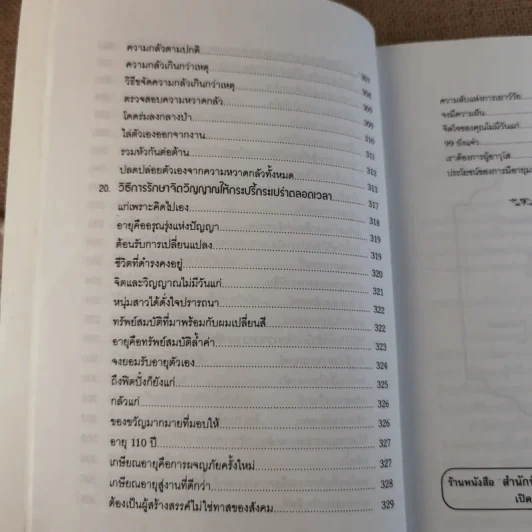 ความกลัวตามปกติ
ความกลัวเกินกว่าเหตุ 307
วิธีขจัดความกลัวเกินกว่าเหตุ 308
ตรวจสอบความหวาดกลัว 309
โดดร่มลงกลางป่า 309
ไล่ตัวเองออกจากงาน 310
รวมหัวกันต่อต้าน 311
ปลดปล่อยตัวเองจากความหวาดกลัวทั้งหมด 312
20. วิธีการรักษาจิตวิญญาณให้กระปรี้กระเปร่าตลอดเวลา 313
แก่เพราะคิดไปเอง 317
อายุคืออรุณรุ่งแห่งปัญญา 318
ต้อนรับการเปลี่ยนแปลง 319
ชีวิตที่ดำรงคงอยู่ 319
จิตและวิญญาณไม่มีวันแก่ 320
หนุ่มสาวได้ดั่งใจปรารถนา 321
ทรัพย์สมบัติที่มาพร้อมกับผมเปลี่ยนสี 322
อายุคือทรัพย์สมบัติล้ำค่า 322
จงยอมรับอายุตัวเอง 323
ถึงฟิตปั๋งก็ยังแก่ 324
กลัวแก่ 325
ของขวัญมากมายที่มอบให้ 326
อายุ 110 ปี 326
เกษียณอายุคือการผจญภัยครั้งใหม่ 327
เกษียณอายุสู่งานที่ดีกว่า 327
ต้องเป็นผู้สร้างสรรค์ไม่ใช่ทาสของสังคม 328
329
ความลับแห่งการเยาว์วัย
จงมีความฝัน
จิตใจของคุณไม่มีวันแก่
99 ยังแจ๋ว
เราต้องการผู้อาวุโส
ประโยชน์ของการมีอายุ
ร้านหนังสือ
เปิด